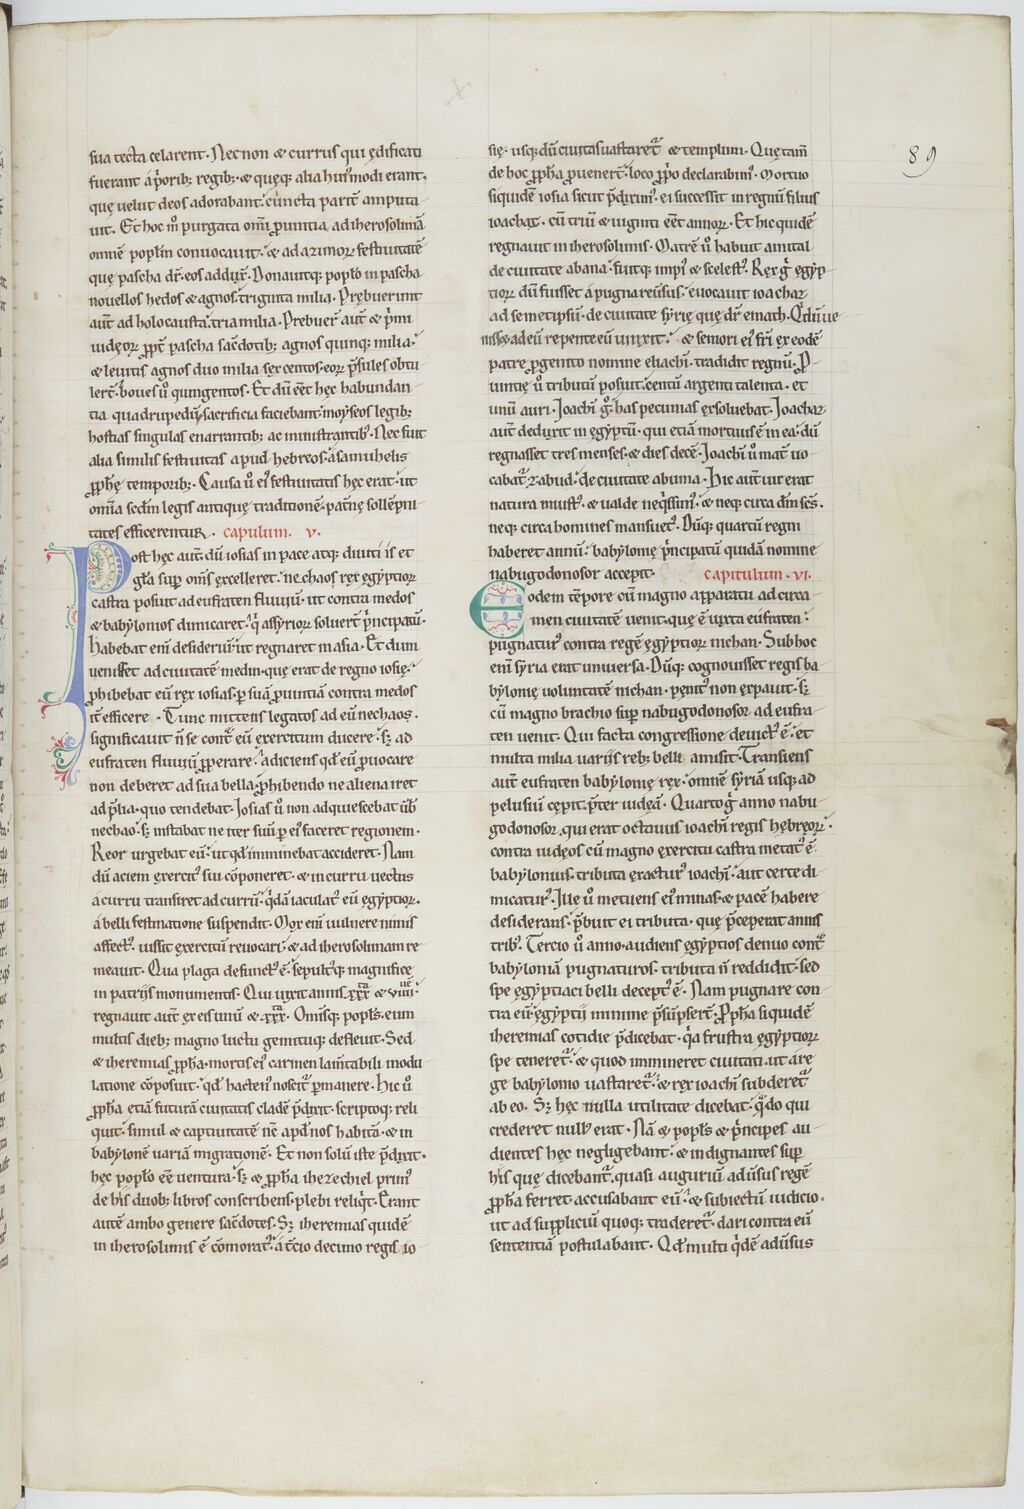 89
sua tecta celarent. Nec non & currus qui ędificati
fuerant a p̄orib; regib; & quęq; alia hui᷒modi erant.
quę velut deos adorabant. cuncta partī amputa
uit. Et hoc m̊ purgata om̄i prouintia ad iherosolimā
omnē popl̄m conuocauit. & ad azimoꝝ festiuitatē
quę pascha dr̄. eos adduẋ. Donauitq; popl̊ in pascha
nouellos hedos & agnos. triginta milia. Prębuerunt
aut̄ ad holocausta. tria milia. Prebuer̄ aut̄ & p̄mi
iudęoꝝ ꝓpt̄ pascha sac̄dotib; agnos quinq; milia.
& leuitis agnos duo milia sexcentos. eoꝝ p̄sules obtu
ler̄t. boues ů quingentos. Et dū eēt hęc habundan
tia quadrupedū. sacrificia faciebant. moyseos legib;
hostias singulas enarrantib; ac ministrantib᷒. Nec fuit
alia similis festiuitas apud hebreos. a samuhelis
ꝓph̄ę temporib;. Causa ů ei᷒ festiuitatis hęc erat. ut
om̄ia sc̄dm legis antiquę traditionē. pat̄nę sollēpni
tates efficerentur. capitulum. v.
Post hęc aut̄ dū iosias in pace atq; diuitiis et
gl̄a suꝑ om̄s excelleret. nechaos rex egyptioꝝ
castra posuit ad eufraten fluuiū. ut contra medos
& babylonios dimicaret. q̄ assyrioꝝ soluer̄t p̄ncipatū.
Habebat eni desideriū. ut regnaret in asia. Et dum
uenisset ad ciuitatē medin. quę erat de regno iosię.
ꝓhibebat eū rex iosias. ꝑ suā ꝓuintiā contra medos
it̄ efficere. Tunc mittens legatos ad eū nechaos.
significauit n̄ se cont̄ eū exercitum ducere. sꝫ ad
eufraten fluuiū ꝓperare. adiciens qd̄ eū ꝓuocare
non deberet ad sua bella. ꝓhibendo ne aliena iret
ad p̄lia. quo tendebat. Iosias ů non adquiescebat ūb̄
nechao. sꝫ instabat ne iter suū ꝑ ei᷒ faceret regionem.
Reor urgebat eū. ut qd̄ imminebat accideret. Nam
dū aciem exercit᷒ sui cōponeret. & in curru uectus
a curru transiret ad currū. q̄dā iaculat᷒ eū egyptioꝝ.
a belli festinatione suspendit. Mox eni uulnere nimis
affect᷒. iussit exercitū reuocari. & ad iherosolimam re
meauit. Qua plaga defunct᷒ ē. sepult᷒q; magnifice
in patriis monumentis. Qui uixit annis xxx & viiii.
regnauit aut̄ ex eis unū & xxx. Omisq; popl̄s. eum
multis dieb; magno luctu gemituq; defleuit. Sed
& iheremias ꝓph̄a. mortis ei᷒ carmen lam̄tabili modu
latione cōposuit. qd̄ hacten᷒ noscit̄ ꝑmanere. Hic ů
ꝓph̄a etiā futurā ciuitatis cladē p̄dixit. scriptoq; reli
quit. simul & captiuitatē nc̄ apd̄ nos habitā. & in
babylonē uariā migrationē. Et non solū iste p̄dixit.
hęc popl̊ eē uentura. sꝫ & ꝓph̄a ihezechiel prim᷒
de his duob; libros conscribens. plebi reliq̄t. Erant
autē ambo genere sac̄dotes. Sꝫ iheremias quidē
in iherosolimis ē cōmorat᷒. a t̄cio decimo regis io
się. usq; dū ciuitas uastaret᷑ & templum. Quę tam̄
de hoc ꝓph̄a ꝓuener̄t. loco ꝓp̄o declarabim᷒. Mortuo
siquidē iosia sicut p̄dixim᷒. ei successit in regnū filius
ioachaz. cū triū & uiginti eēt annoꝝ. Et hic quidē
regnauit in iherosolimis. Matrē ů habuit amital
de ciuitate abana. fuitq; impi᷒ & scelest᷒. Rex ḡ egyp
tioꝝ dū fuisset a pugna reuersus. euocauit ioachaz
ad semetipsū. de ciuitate syrię quę dr̄ emath. Q̄ dū ue
nisset ad eū repente eū uinxit. & seniori ei᷒ fr̄i ex eodē
patre ꝓgenito nomine eliachi. tradidit regnū. P̄
uintię ů tributū posuit. centū argenti talenta. et
unū auri. Joachi g̊ has pecunias exsoluebat. Joachaz
aut̄ deduxit in egyptū. qui etiā mortuus ē in ea. dū
regnasset tres menses. & dies decē. Joachi ů mat̄ uo
cabat᷑ zabud. de ciuitate abuma. Hic aut̄ uir erat
natura iniust᷒. & ualde neq̄ssim᷒. & neq; circa dm̄ sc̄s.
neq; circa homines mansuet᷒. Dūq; quartū regni
haberet annū. babylonię p̄ncipatū quidā nomine
nabugodonosor accepit. capitulum. vi.
Eodem tēpore cū magno apparatu ad circa
men ciuitatē uenit. quę ē iuxta eufraten.
pugnatur᷒ contra regē egyptioꝝ nichan. Sub hoc
eni syria erat uniuersa. Dūq; cognouisset regis ba
bylonię voluntatē nichan. penit᷒ non expauit. sꝫ
cū magno brachio suꝑ nabugodonosor ad eufra
ten uenit. Qui facta congressione deuict᷒ ē. et
multa milia variis reb; belli amisit. Transiens
aut̄ eufraten babylonię rex. omnē syriā usq; ad
pelusiū cępit. p̄ter iudęā. Quarto ḡ anno nabu
godonosor. qui erat octauus ioachi regis hębręoꝝ.
contra iudęos cū magno exercitu castra metat᷒ ē
babylonius. tributa exactur᷒ ioachi. aut certe di
micatur᷒. Ille ů metuens ei᷒ minas. & pacē habere
desiderans. p̄buit ei tributa. quę p̄ceperat annis
trib᷒. Tercio ů anno. audiens egyptios denuo cont̄
babyloniā pugnaturos. tributa n̄ reddidit. sed
spe egyptiaci belli decept᷒ ē. Nam pugnare con
tra eū. egyptii minime p̄sūpser̄t. Ꝓph̄a siquidē
iheremias cotidie p̄dicebat. q̄a frustra egyptioꝝ
spe teneret᷑. & quod immineret ciuitati. ut a re
ge babylonio uastaret᷑. & rex ioachi subderet᷑
ab eo. Sꝫ hęc nulla utilitate dicebat. q̄do qui
crederet null᷒ erat. Nā & popl̄s & p̄ncipes au
dientes hęc negligebant. & indignantes suꝑ
his quę dicebant᷑. quasi auguriū aduersus regē
ꝓph̄a ferret accusabant eū. & subiectū iudicio.
ut ad suppliciū quoq; traderet᷑. dari contra eū
sententiā postulabant. Qd̄ multi q̄dē aduersus